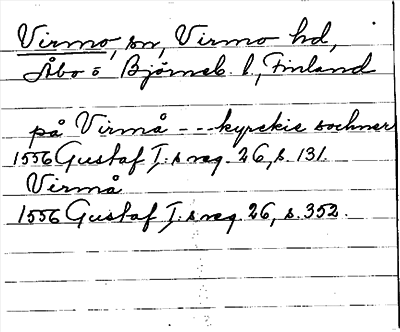 Virmo, sn, Virmo hd,
Åbo o Björneb. l., Finland
på Virmå - - - kyrckie sochner
1556 Gustaf I:s reg. 26, s. 131.
Virmå
1556 Gustaf I:s reg. 26, s. 352.